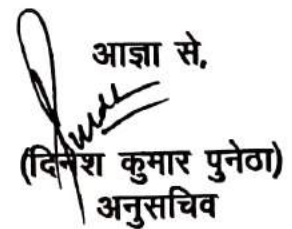 आज्ञा से,
(दिनेश कुमार पुनेठा)
अनुसचिव